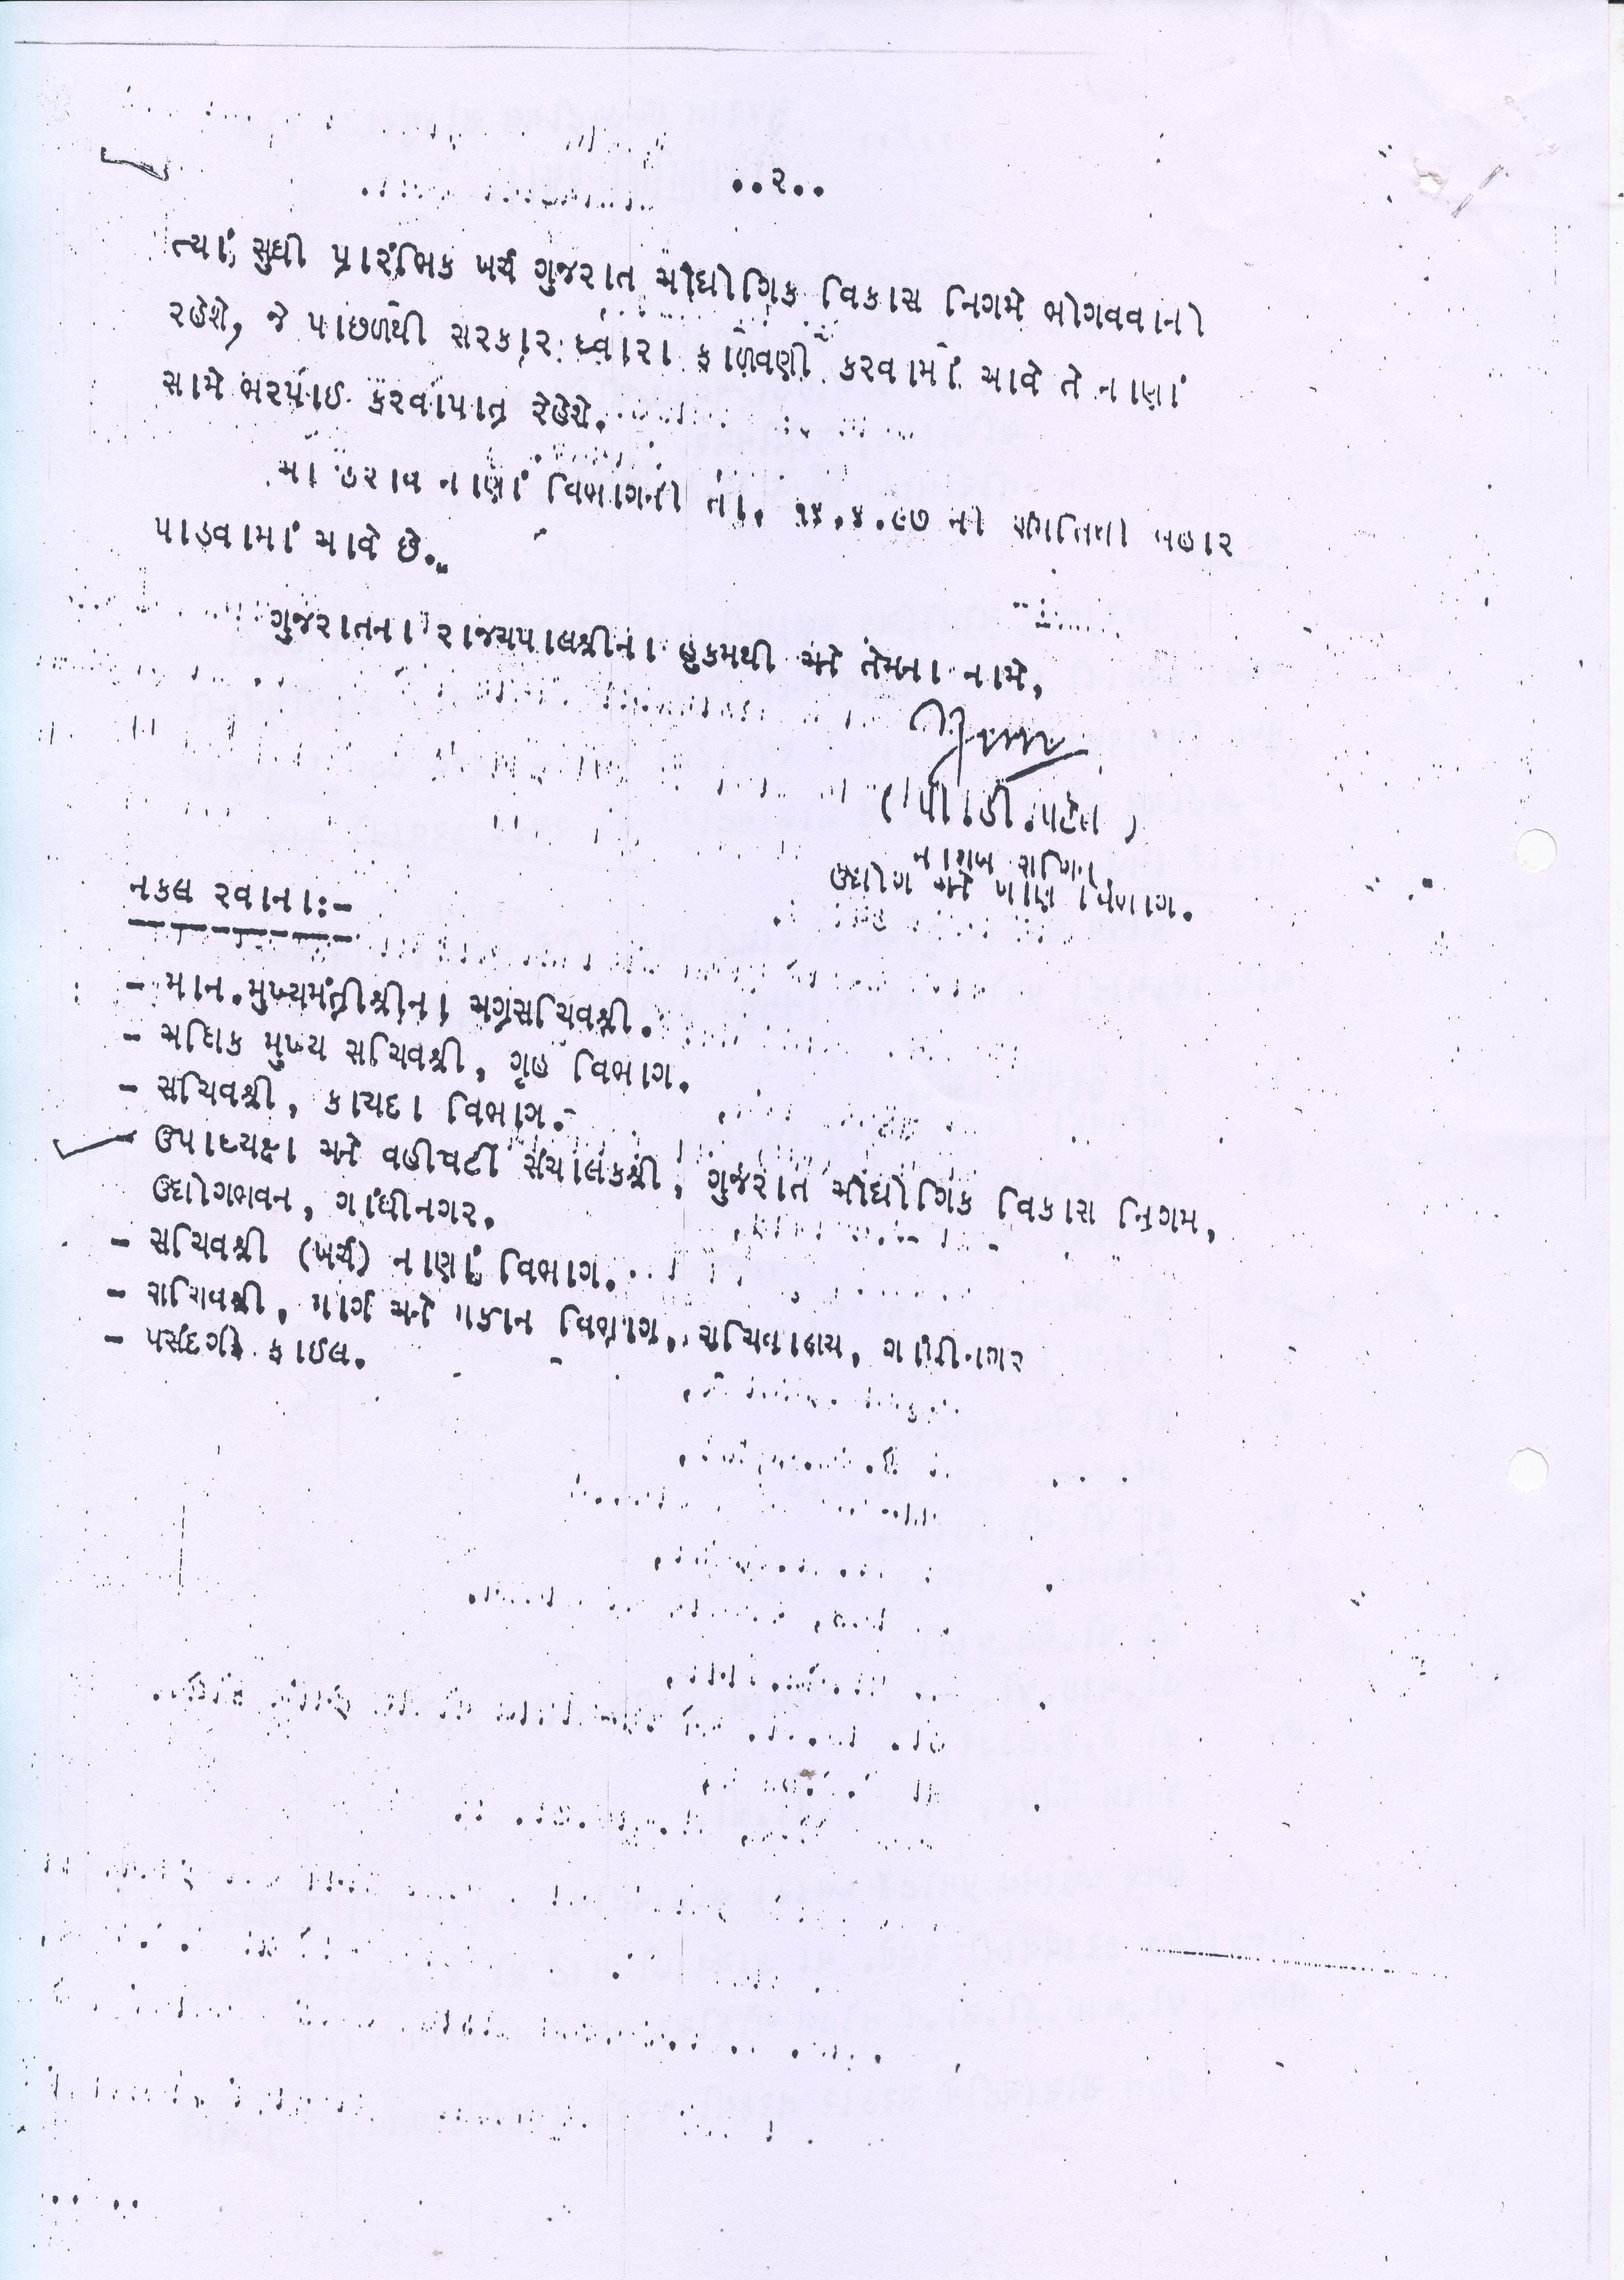 ..૨..
ત્યાં સુધી પ્રારંભિક ખર્ચ ગુજરાત ઔદ્યોગિક વિકાસ નિગમે ભોગવવાનો
રહેશે, જે પાછળથી સરકાર ધ્વારા ફાળવણી કરવામાં આવે તે નાણાં
સામે ભરપાઈ કરવાપાત્ર રહેશે.
આ ઠરાવ નાણાં વિભાગની તા. ૧૪.૪.૯૭ ની બહાર
પાડવામાં આવે છે.
ગુજરાતના રાજ્યપાલશ્રીના હુકમથી અને તેમના નામે,
(પી.ડી.પટેલ)
નાયબ સચિવ
ઉદ્યોગ અને ખાણ વિભાગ.
નકલ રવાના:-
- માન.મુખ્યમંત્રીશ્રીના અગ્રસચિવશ્રી.
- અધિક મુખ્ય સચિવશ્રી, ગૃહ વિભાગ.
- સચિવશ્રી, કાયદા વિભાગ.
- ઉપાધ્યક્ષ અને વહીવટી સંચાલકશ્રી, ગુજરાત ઔદ્યોગિક વિકાસ નિગમ,
ઉદ્યોગભવન, ગાંધીનગર.
- સચિવશ્રી (ખર્ચ) નાણાં વિભાગ.
- સચિવશ્રી, માર્ગ અને મકાન વિભાગ, સચિવાલય, ગાંધીનગર
- પસંદગી ફાઈલ.